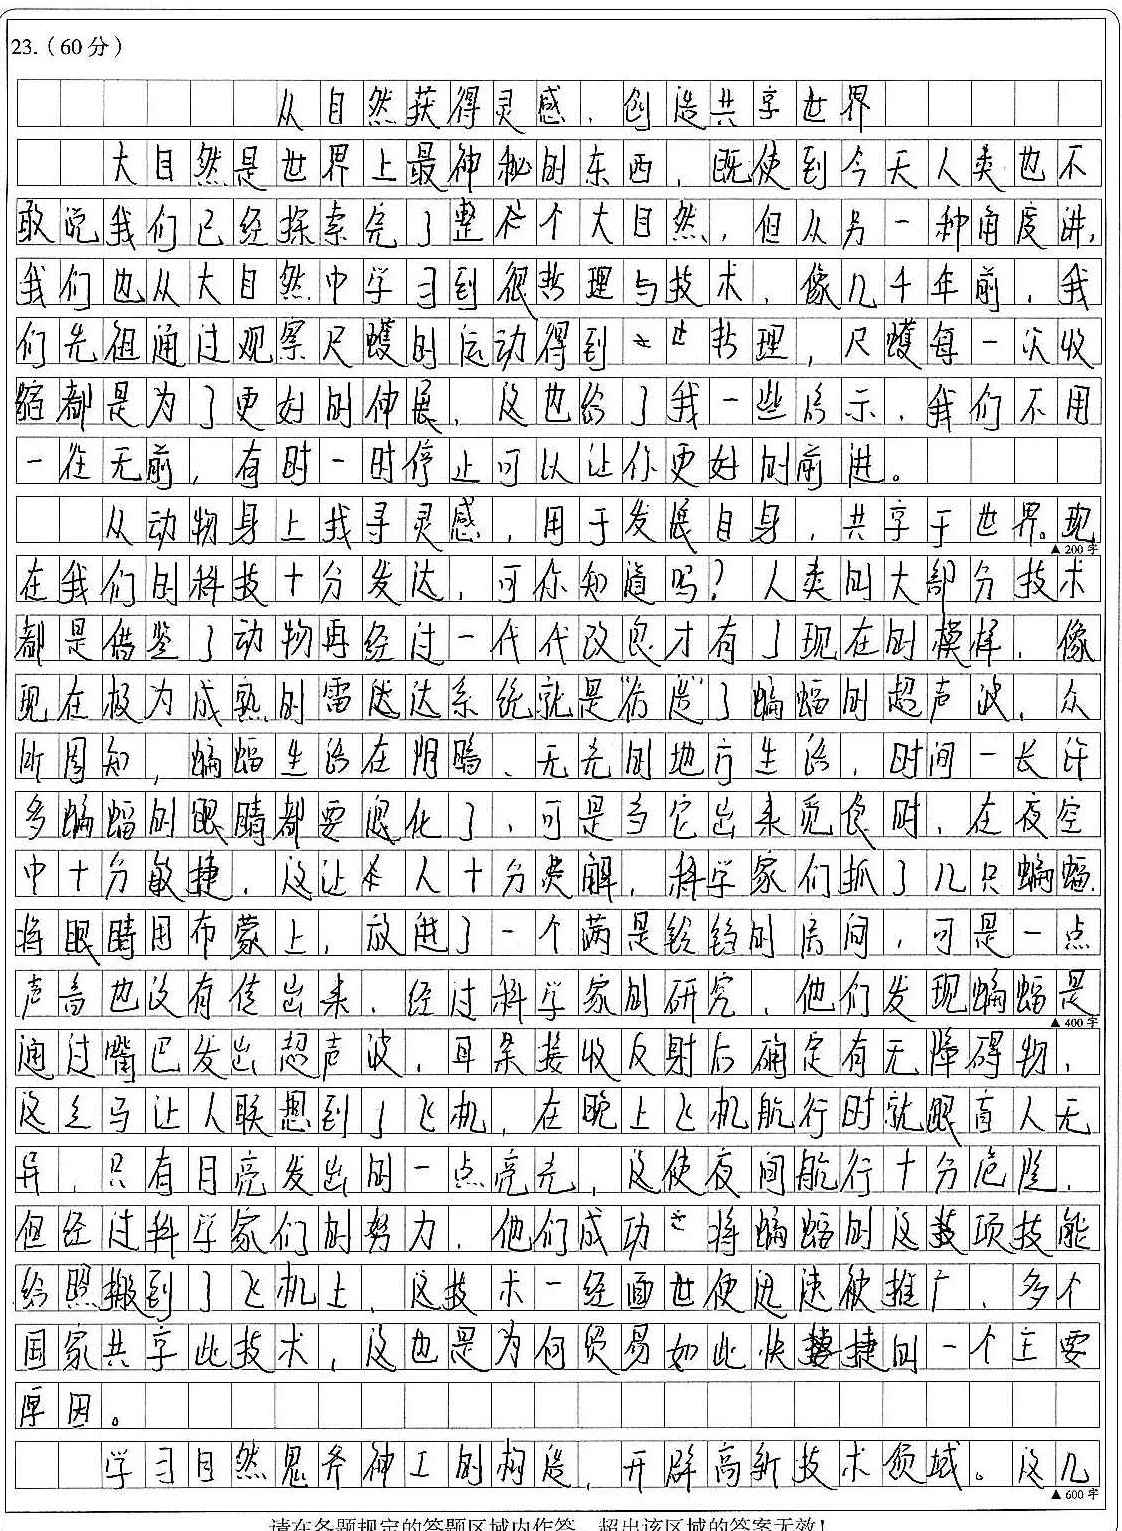 23.（60分）
从自然获得灵感，创造共享世界
大自然是世界上最神秘的东西，既使到今天人类也不
敢说我们已经探索完了整个大自然，但从另一种角度讲，
我们也从大自然中学习到很哲理与技术，像几千年前，我
们先祖通过观察尺蠖的运动得到哲理，尺蠖每一次收
缩都是为了更好的伸展，这也给了我一些启示，我们不用
一往无前，有时一时停止可以让你更好的前进。
从动物身上找寻灵感，用于发展自身，共享于世界。现
▲200字
在我们的科技十分发达，可你知道吗？人类的大部分技术
都是借鉴了动物再经过一代代改良才有了现在的模样，像
现在极为成熟的雷达系统就是“仿造”了蝙蝠的超声波，众
所周知，蝙蝠生活在阴暗、无光的地方生活，时间一长许
多蝙蝠的眼睛都要退化了，可是当它出来觅食时，在夜空
中十分敏捷，这让人十分费解，科学家们抓了几只蝙蝠，
将眼睛用布蒙上，放进了一个满是铃铛的房间，可是一点
声音也没有传出来，经过科学家的研究，他们发现蝙蝠是
▲400字
通过嘴巴发出超声波，耳朵接收反射后确定有无障碍物，
这立马让人联想到了飞机，在晚上飞机航行时就跟盲人无
异，只有月亮发出的一点亮光，这使夜间航行十分危险，
但经过科学家们的努力，他们成功将蝙蝠的这项技能
给照搬到了飞机上，这技术一经面世便迅速被推广，多个
国家共享此技术，这也是为何贸易如此快捷的一个主要
厚因。
学习自然鬼斧神工的构造，开辟高新技术领域。这几
▲600字
请在各题规定的答题区域内作答，超出该区域的答案无效！